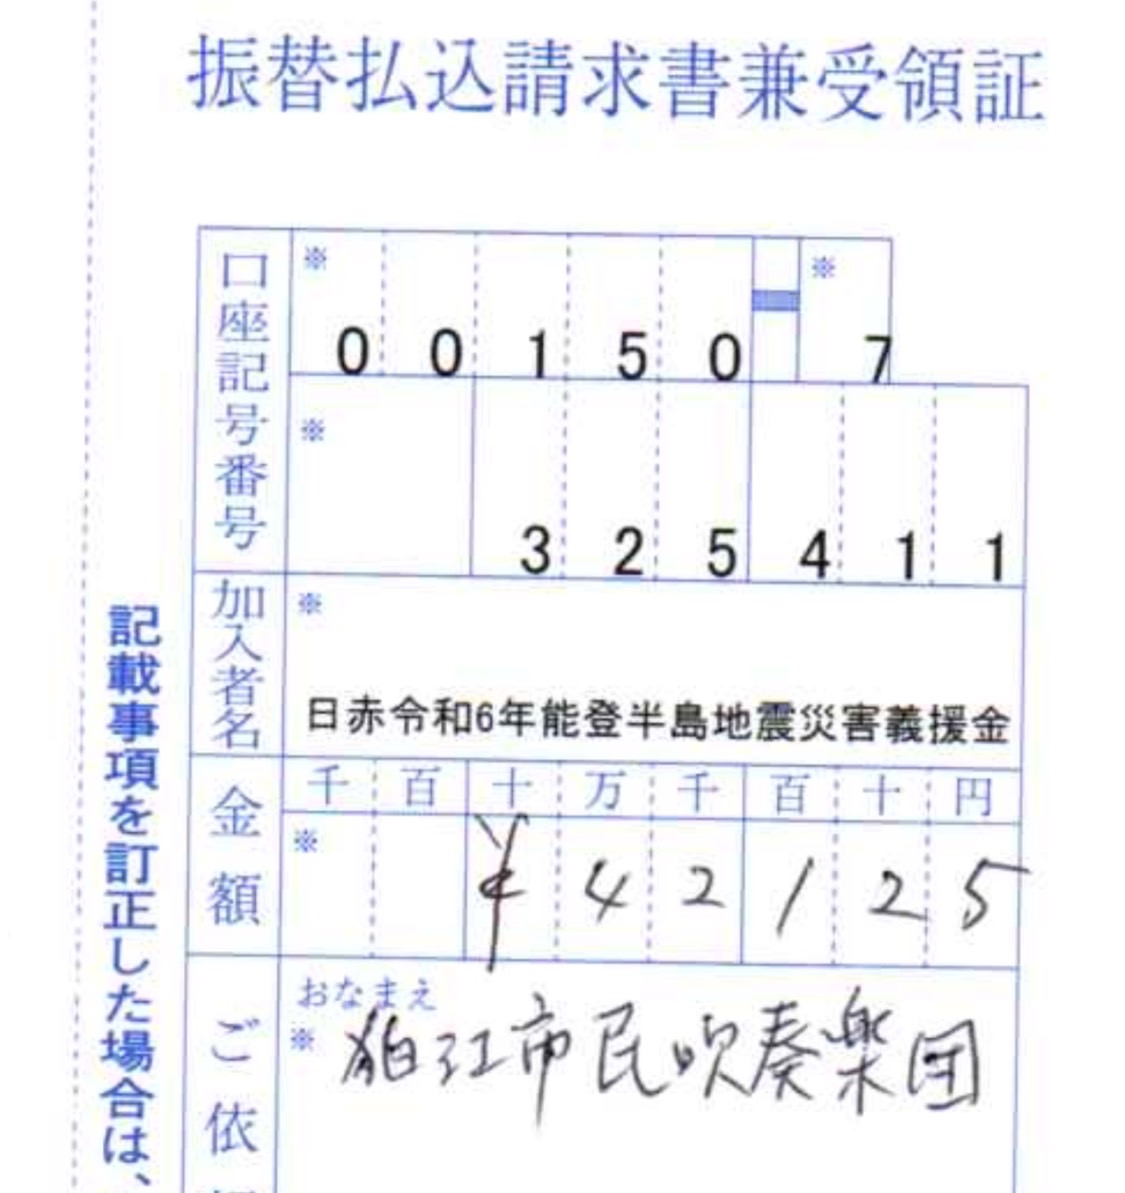 振替払込請求書兼受領証
口座記号番号
※ 0 0 1 5 0 ※ 7
※ 3 2 5 4 1 1
加入者名
※
日赤令和6年能登半島地震災害義援金
金額
千 百 十 万 千 百 十 円
※ ¥ 4 2 1 2 5
ご依
おなまえ
※ 狛江市民吹奏楽団
記載事項を訂正した場合は、